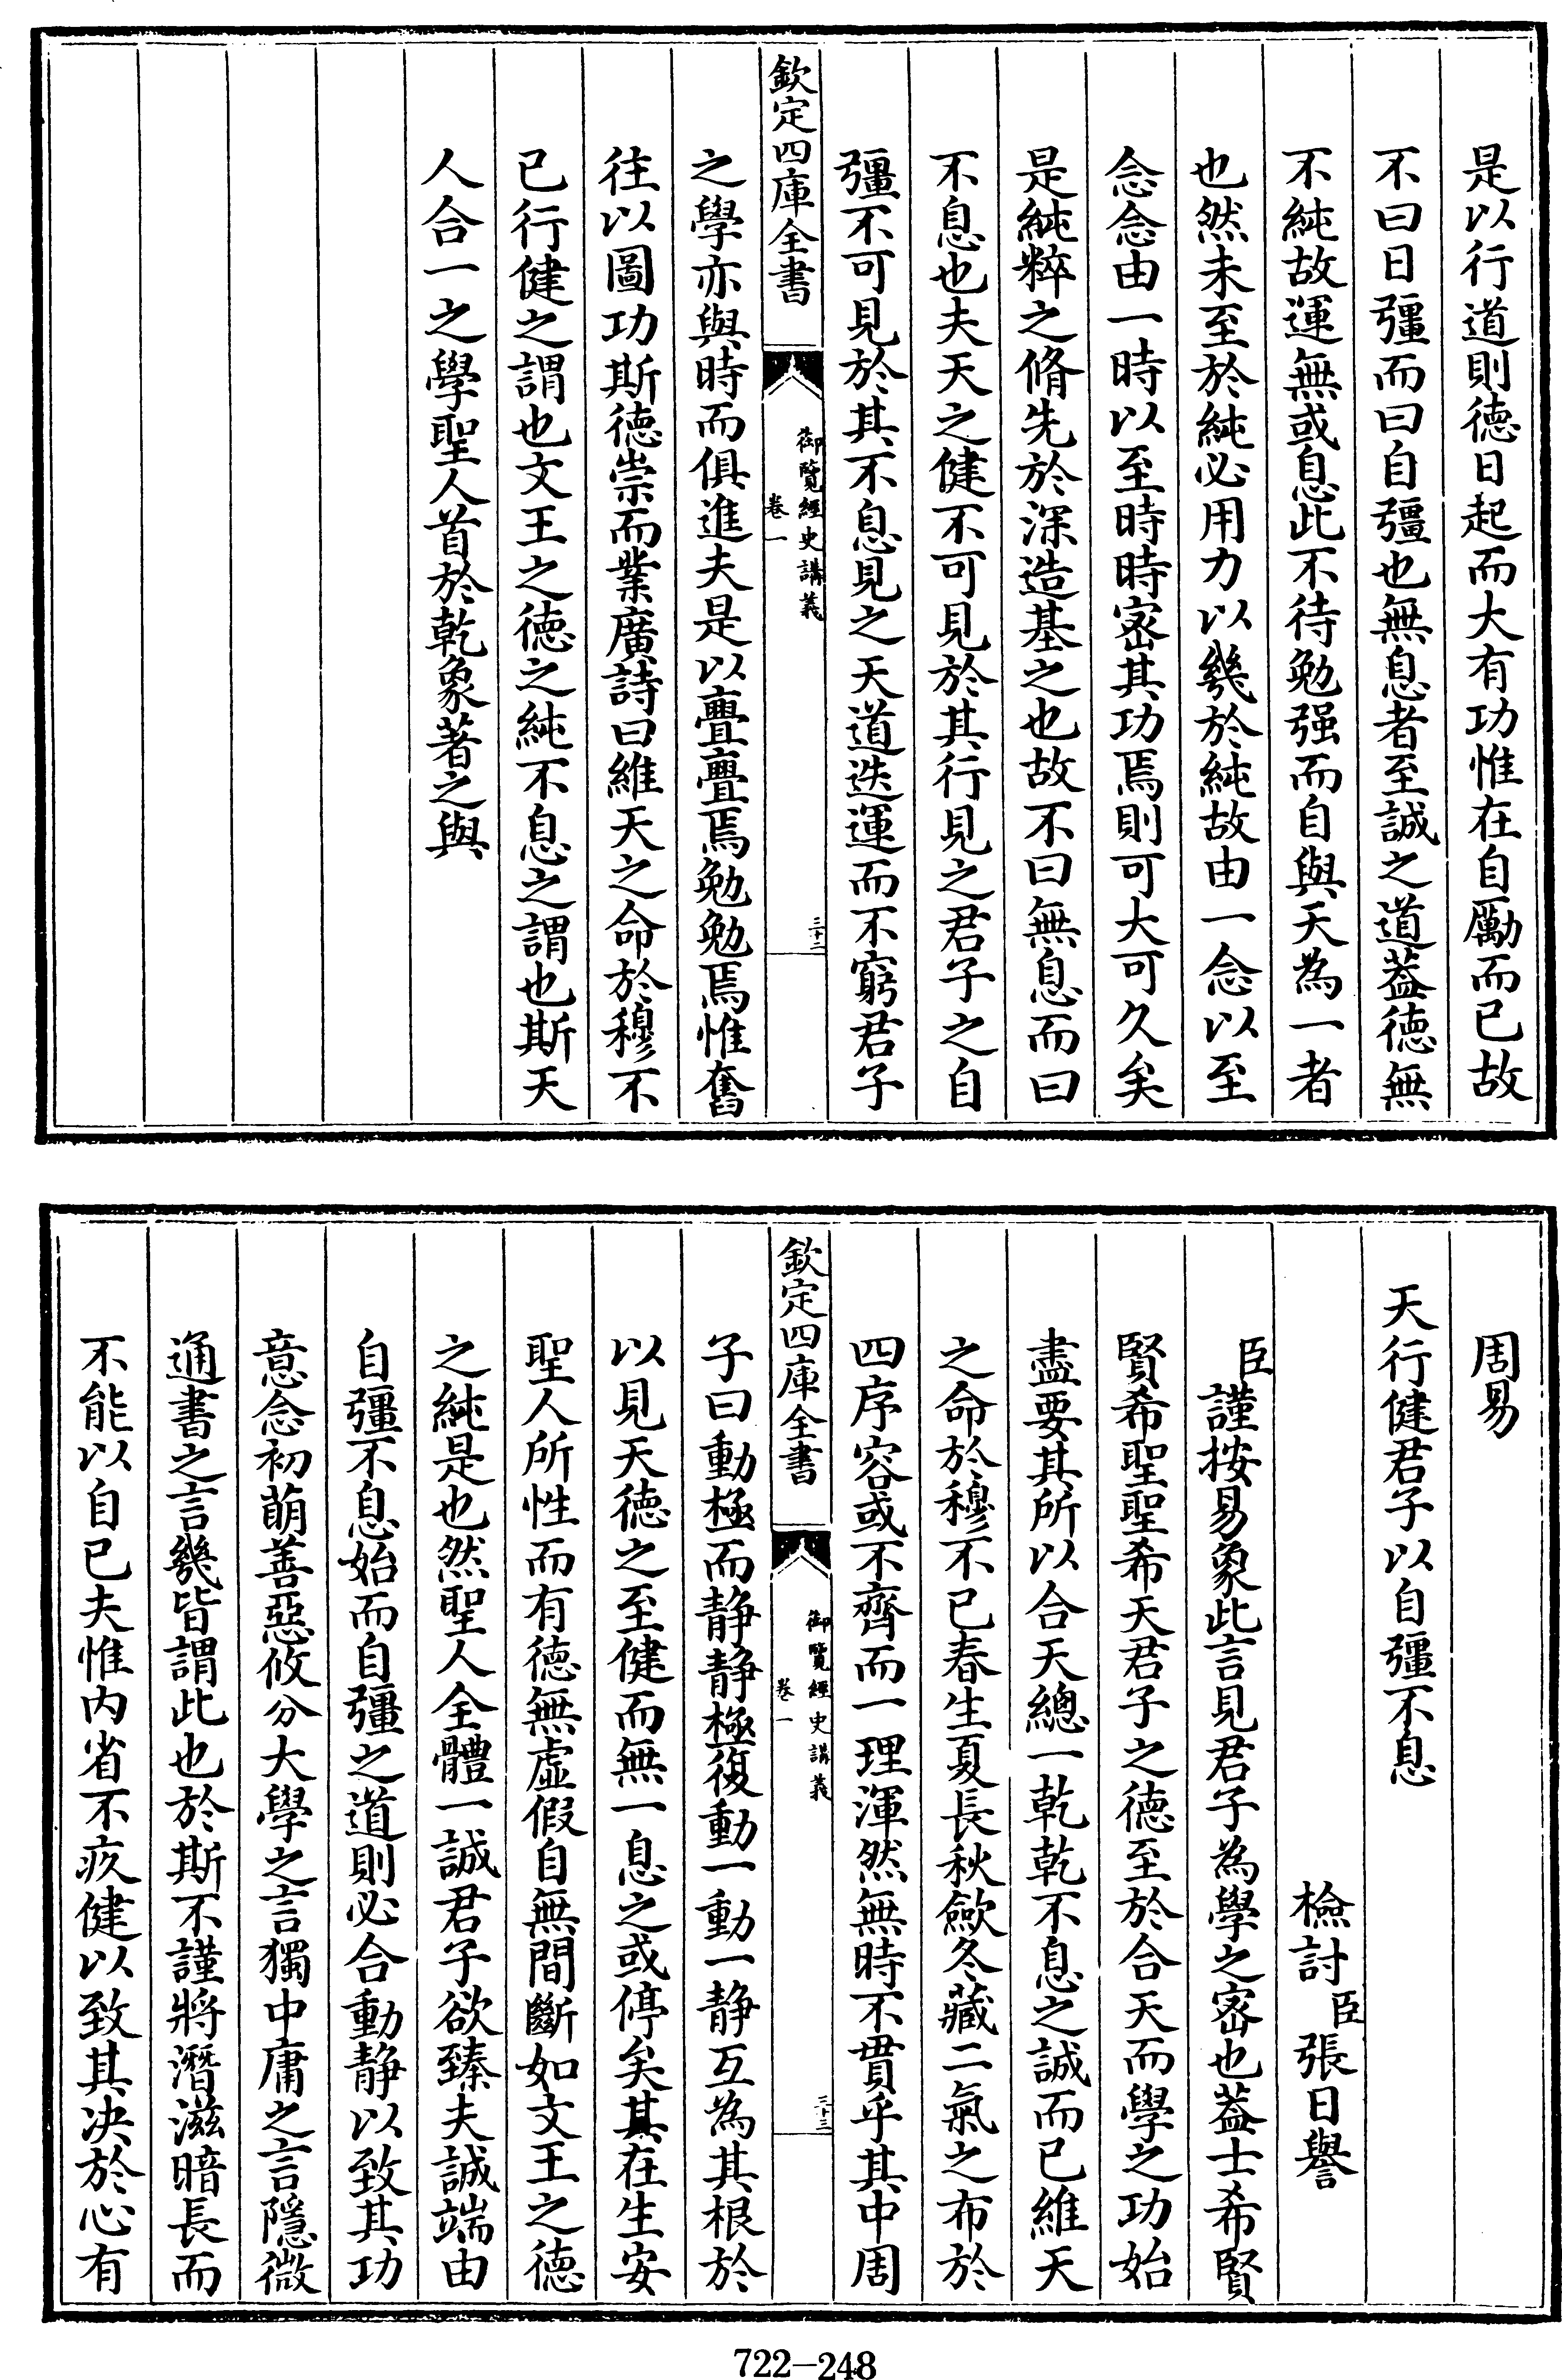 是以行道則德日起而大有功惟在自勵而已故
不曰日彊而曰自彊也無息者至誠之道蓋德無
不純故運無或息此不待勉强而自與天為一者
也然未至於純必用力以幾於純故由一念以至
念念由一時以至時時密其功焉則可大可久矣
是純粹之脩先於深造基之也故不曰無息而曰
不息也夫天之健不可見於其行見之君子之自
彊不可見於其不息見之天道迭運而不窮君子
欽定四庫全書
御覽經史講義
卷一
三十二
之學亦與時而俱進夫是以亹亹焉勉勉焉惟奮
往以圖功斯德崇而業廣詩曰維天之命於穆不
已行健之謂也文王之德之純不息之謂也斯天
人合一之學聖人首於乾象著之與
周易
天行健君子以自彊不息
檢討臣張日譽
臣謹按易象此言見君子為學之密也蓋士希賢
賢希聖聖希天君子之德至於合天而學之功始
盡要其所以合天總一乾乾不息之誠而已維天
之命於穆不已春生夏長秋斂冬藏二氣之布於
四序容或不齊而一理渾然無時不貫乎其中周
欽定四庫全書
御覽經史講義
卷一
三十三
子曰動極而靜靜極復動一動一靜互為其根於
以見天德之至健而無一息之或停矣其在生安
聖人所性而有德無虛假自無間斷如文王之德
之純是也然聖人全體一誠君子欲臻夫誠端由
自彊不息始而自彊之道則必合動靜以致其功
意念初萌善惡攸分大學之言獨中庸之言隱微
通書之言幾皆謂此也於斯不謹將潛滋暗長而
不能以自已夫惟内省不疚健以致其决於心有
722—248